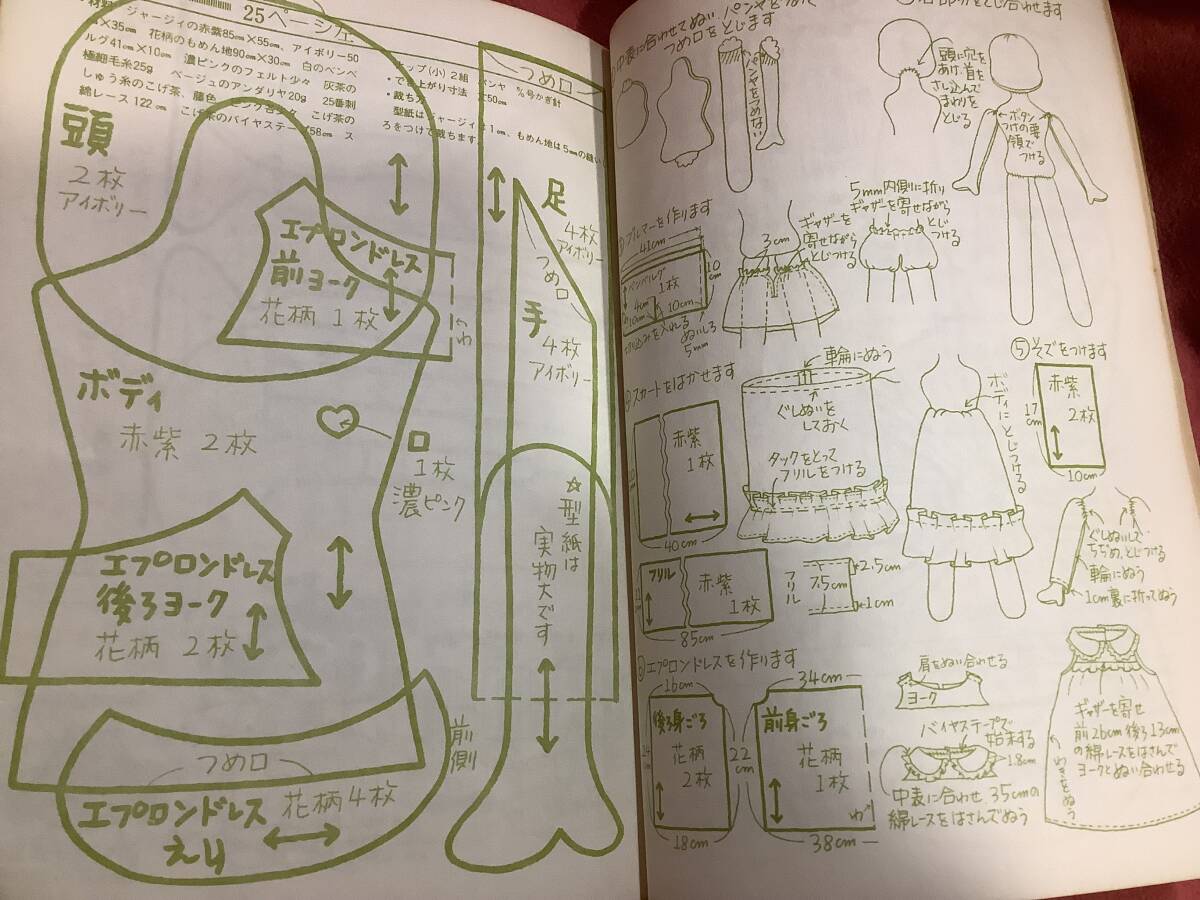 25ページ
ジャージィの赤紫85cm×55cm、アイボリー50
×35cm 花柄のもめん地90cm×30cm 白のベンベ
ルグ41cm×10cm 濃ピンクのフェルト少々 灰茶の
極細毛糸25g ベージュのアンダリヤ20g 25番刺
しゅう糸のこげ茶、藤色、ピンク各少々 こげ茶の
綿レース122cm こげ茶のバイヤステープ58cm ス
ナップ(小)2組 パンヤ 号かぎ針
・でき上がり寸法 丈50cm
・裁ち方
型紙はジャージィは1cm、もめん地は5mmの縫いし
ろをつけて裁ちます
頭
2枚
アイボリー
エプロンドレス
前ヨーク
花柄 1枚
わ
ボディ
赤紫 2枚
口
1枚
濃ピンク
エプロンドレス
後ろヨーク
花柄 2枚
つめ口
エプロンドレス
えり
花柄4枚
前側
つめ口
足
4枚
アイボリー
つめ口
手
4枚
アイボリー
☆型紙は
実物大です
中表に合わせてぬい、パンヤを
つめ口をとじます
パンヤをつめない
頭に穴を
あけ、首を
さし込んで
まわりを
とじる
をとじ合わせます
ボタン
つけの要
領で
つける
ブルマーを作ります
41cm
ベンベルグ
1枚
10cm
4cm
10cm
10cm
切り込みを入れる
ぬいしろ
5mm
3cm
ギャザーを
寄せながら
とじつける
5mm内側に折り
ギャザーを寄せながら
とじつける
スカートをはかせます
赤紫
1枚
40cm
輪にぬう
ぐしぬいを
しておく
タックをとって
フリルをつける
ボディにとじつける
フリル
赤紫
1枚
85cm
フリル
7.5cm
2.5cm
1cm
⑤そでをつけます
赤紫
2枚
17cm
10cm
ぐしぬいして
ちぢめ、とじつける
輪にぬう
1cm裏に折ってぬう
⑥エプロンドレスを作ります
16cm
後ろ身ごろ
花柄
2枚
18cm
22cm
34cm
前身ごろ
花柄
1枚
わ
38cm
肩をぬい合わせる
ヨーク
バイヤステープで
始末する
18cm
中表に合わせ 35cmの
綿レースをはさんでぬう
ギャザーを寄せ
前26cm後ろ13cm
の綿レースをはさんで
ヨークとぬい合わせる
わきをぬう